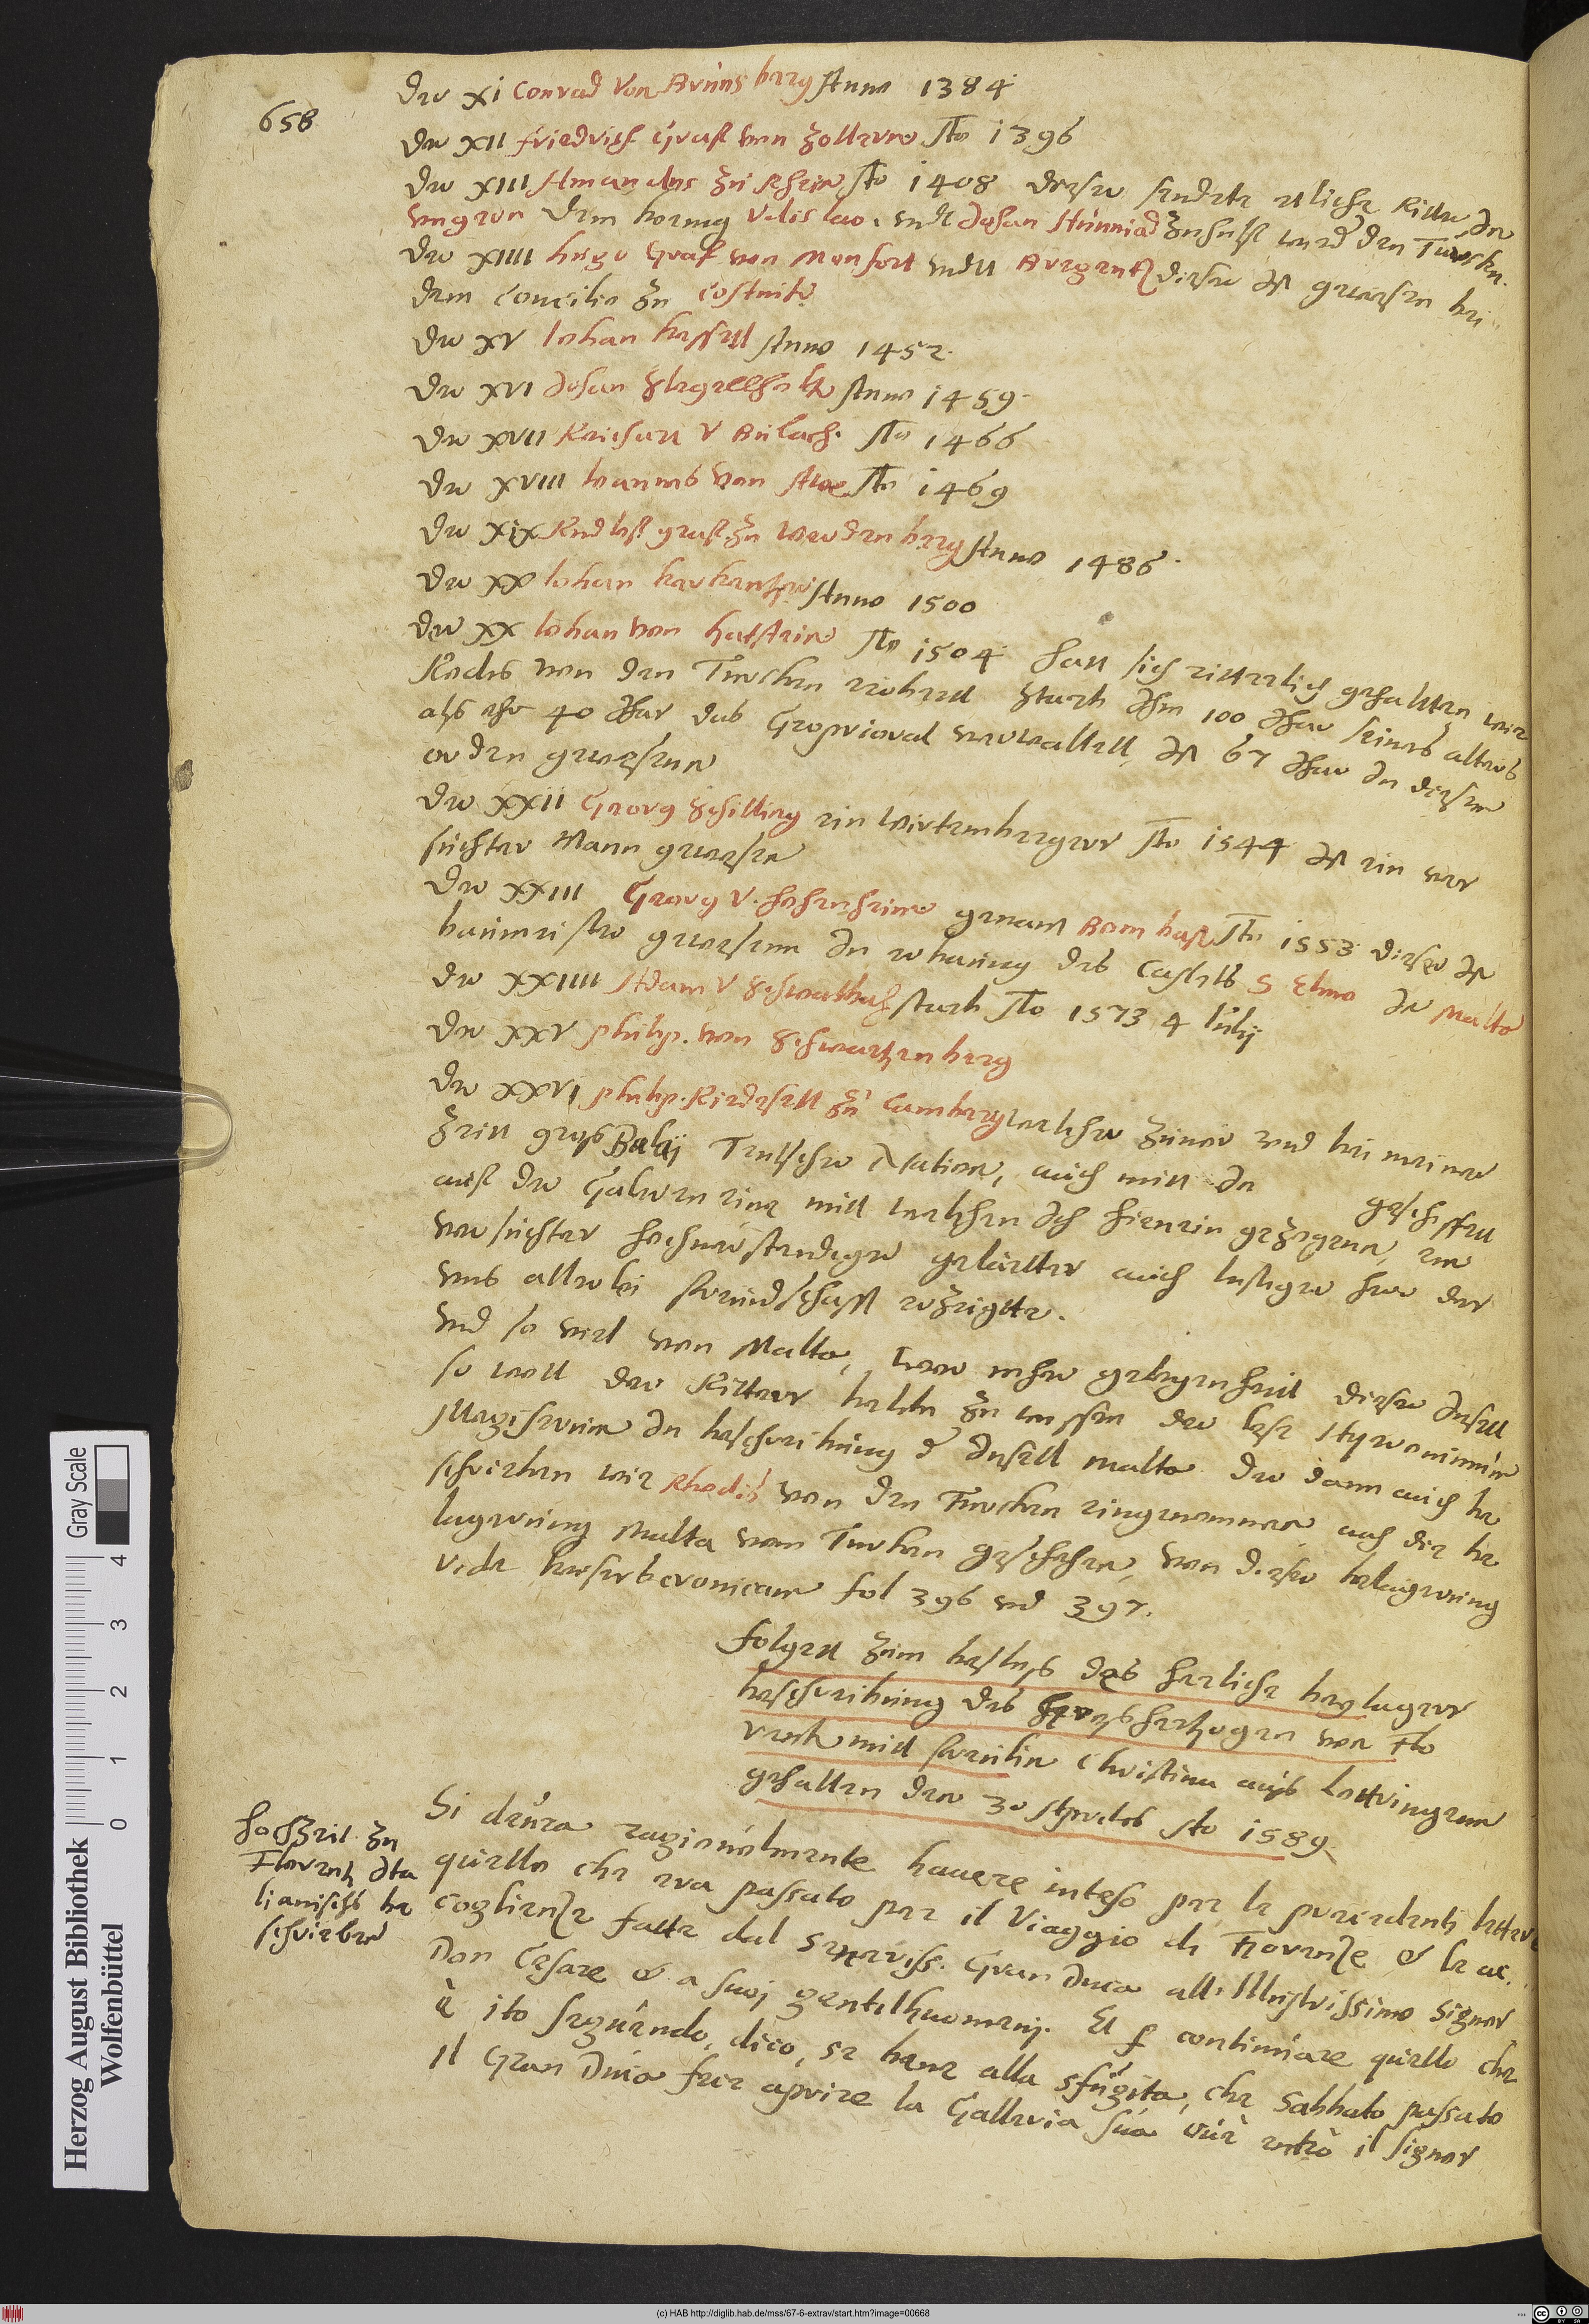 658
Der XI Conrad von Brunsberg Anno 1384
Der XII Friedrich Graf von Zollern Ao 1396
Der XIII Amandus zu Rhein Ao 1408 dieser sendete etliche Ritter In
ungeren dem koenig Vdislao, undt Johan Hunniad zu hulf wider den Turcken.
Der XIIII Hugo Graf von Monfort undtt Bregentz dieser Ist gewesen bei
dem Concilio zu Costnitz
Der XV Johan hessell Anno 1452.
Der XVI Johan Schlegelholtz Anno 1459.
Der XVII Reichart V Bulach. Ao 1466
Der XVIII Joannes von Awe Ao 1469
Der XIX Rudolf graf zu Werdenberg Anno 1486.
Der XX Johan Anno 1500
Der XX Johan von hatstein Ao 1504 hatt sich ritterlich gehalten wie
Rodis von den Turcken erobertt sturb Im 100 Jhar seines alters
alss ehr 40 Jhar das Groprioral verwalltett, Ist 67 Jhar In diesem
orden gewesenn
Der XXII Georg Schilling ein Wirtembergerr Ao 1544 Ist ein ver
suchter Mann gewesen
Der XXIII Georg V. Hohenheim genant Bombast Ao 1553 dieser Ist
baumeister gewesenn In erbaung des Castels S Elmo In Malta
Der XXIIII Adam V Schwalbach starb Ao 1573 4 Julij
Der XXV philip. von Schwartzenberg
Der XXVI philip. Riedesell zu Camberg welcher zuuor und bei meiner
Zeitt gross Balij Teutscher Nation, auch mitt In geschiffett
auf der Galeren eine mitt welchen Ich hienein gezogenn, ein
versuchter hochuerstendiger gelartter auch lustiger herr der
uns allerlei freundschafft erzeigtte.
Und so viel von Malta, wer mehr gelegenheitt dieser Insell
so woll der Ritterr beliebt zu wissen der lese Hyeronimum
Megiserum In beschreibung d Insell Malta der dann auch be
schrieben wie Rhodis von den Turcken eingenommen auch die be
legerung Malta vom Turken geschehen, von dieser belagerung
vide fol 396 und 397.
folgett zum beschluss das herliche beylagerr
beschreibung des Grosshertzogen von Flo
rentz mitt freulin Christina auss Lottringenn
gehalten den 30 Aprilis Ao 1589.
Hochzeit zu
Florentz Ita
lianisch be
schrieben
Si deura ragionolmente hauere inteso per le precedenti lettere
quello che era passato per il Viaggio di Fiorenze & le ac
coglienze fatte dal Sereniss. Gran Duca all. Illustrissimo Signor
Don Cesare & a suoj gentilhuomenj. Et p continuare quello che
è ito seguendo, dico, se bene alla sfugita, che Sabbato passato
il Gran Duca fece aprire la Galleria sua oue entrò il Signor
Herzog August Bibliothek
Wolfenbüttel
0 1 2 3 4
Gray Scale
(c) HAB http://diglib.hab.de/mss/67-6-extrav/start.htm?image=00668